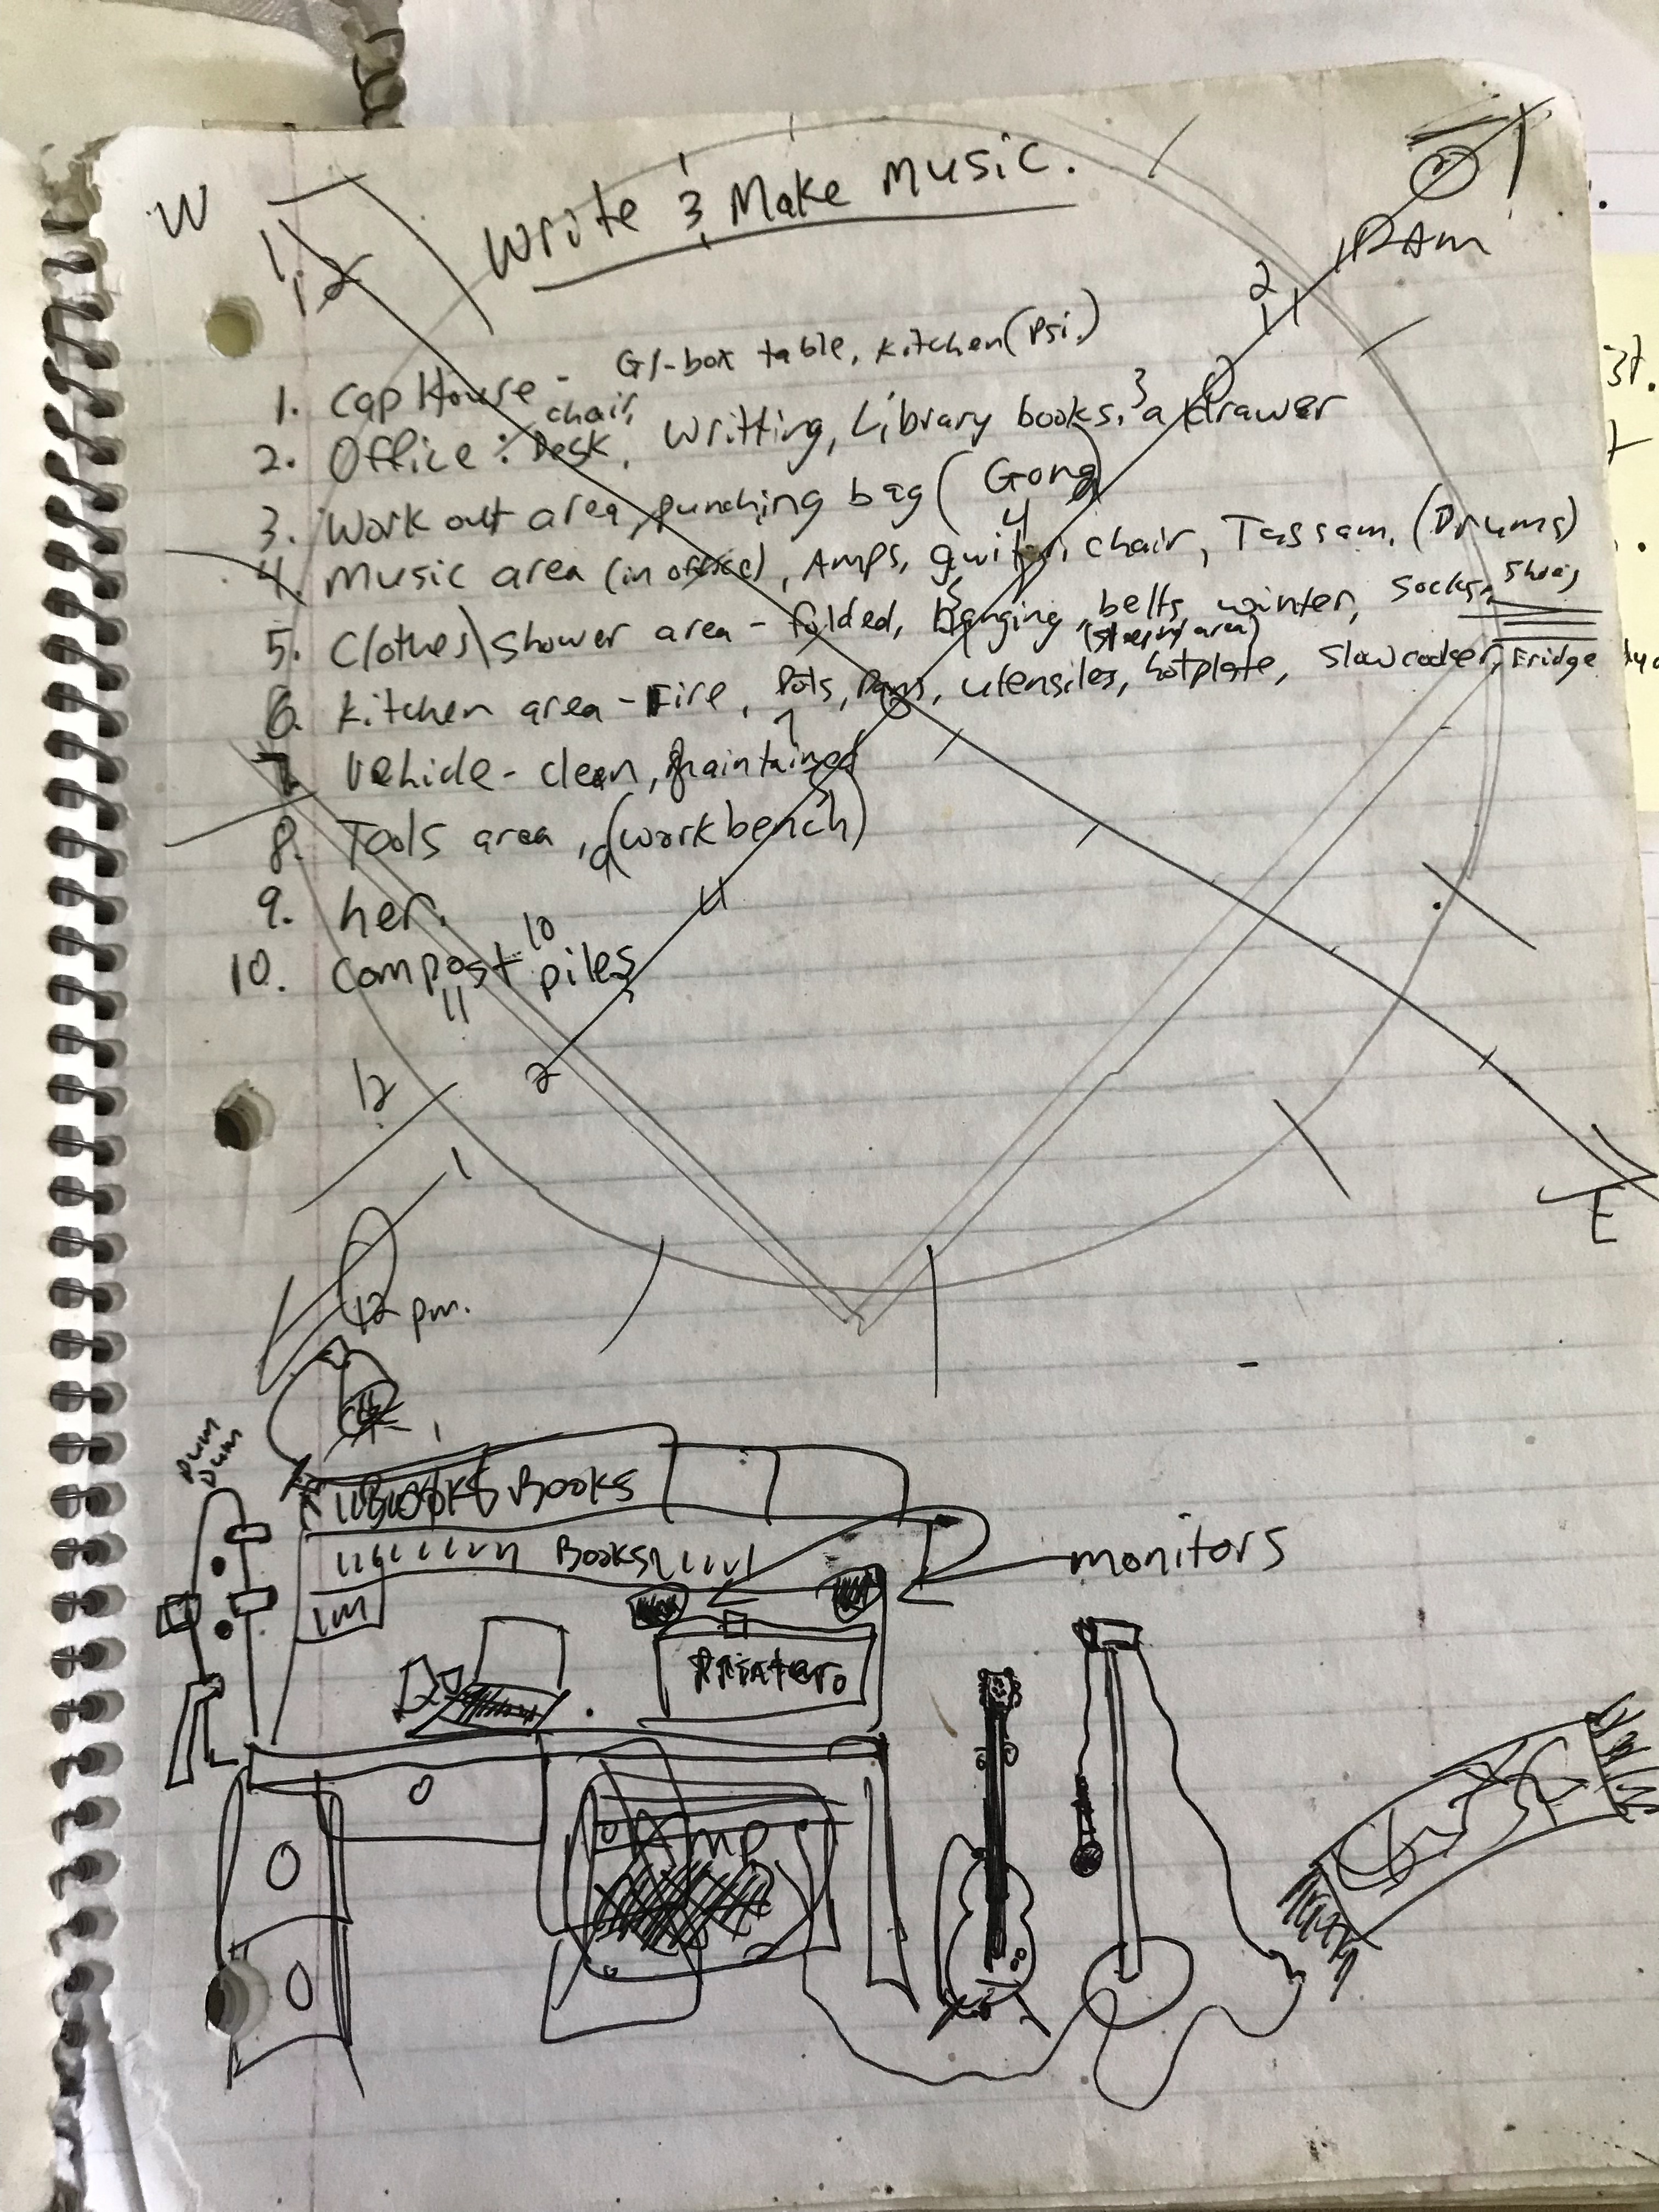 W
Write & Make Music.
12 Am
G/-box table, kitchen (Psi.)
1. Cap House -
chair,
2. Office : Desk, Writting, Library books, a drawer
3. Work out area, punching bag (Gong)
4. Music area (in office), Amps, guitar, chair, Tassam, (Drums)
5. Clothes\Shower area - folded, hanging, belts, winter, socks, shoes
(sleeping area)
6. Kitchen area - Fire, Pots, Pans, utensiles, hotplate, slowcooker, Fridge
7. Vehicle - clean, maintained
8. Tools area, (workbench)
9. her.
10. Compost piles
10
11
12
2
1
E
12 pm.
Dum
Dum
Books Books
Books
monitors
Printer
Amp